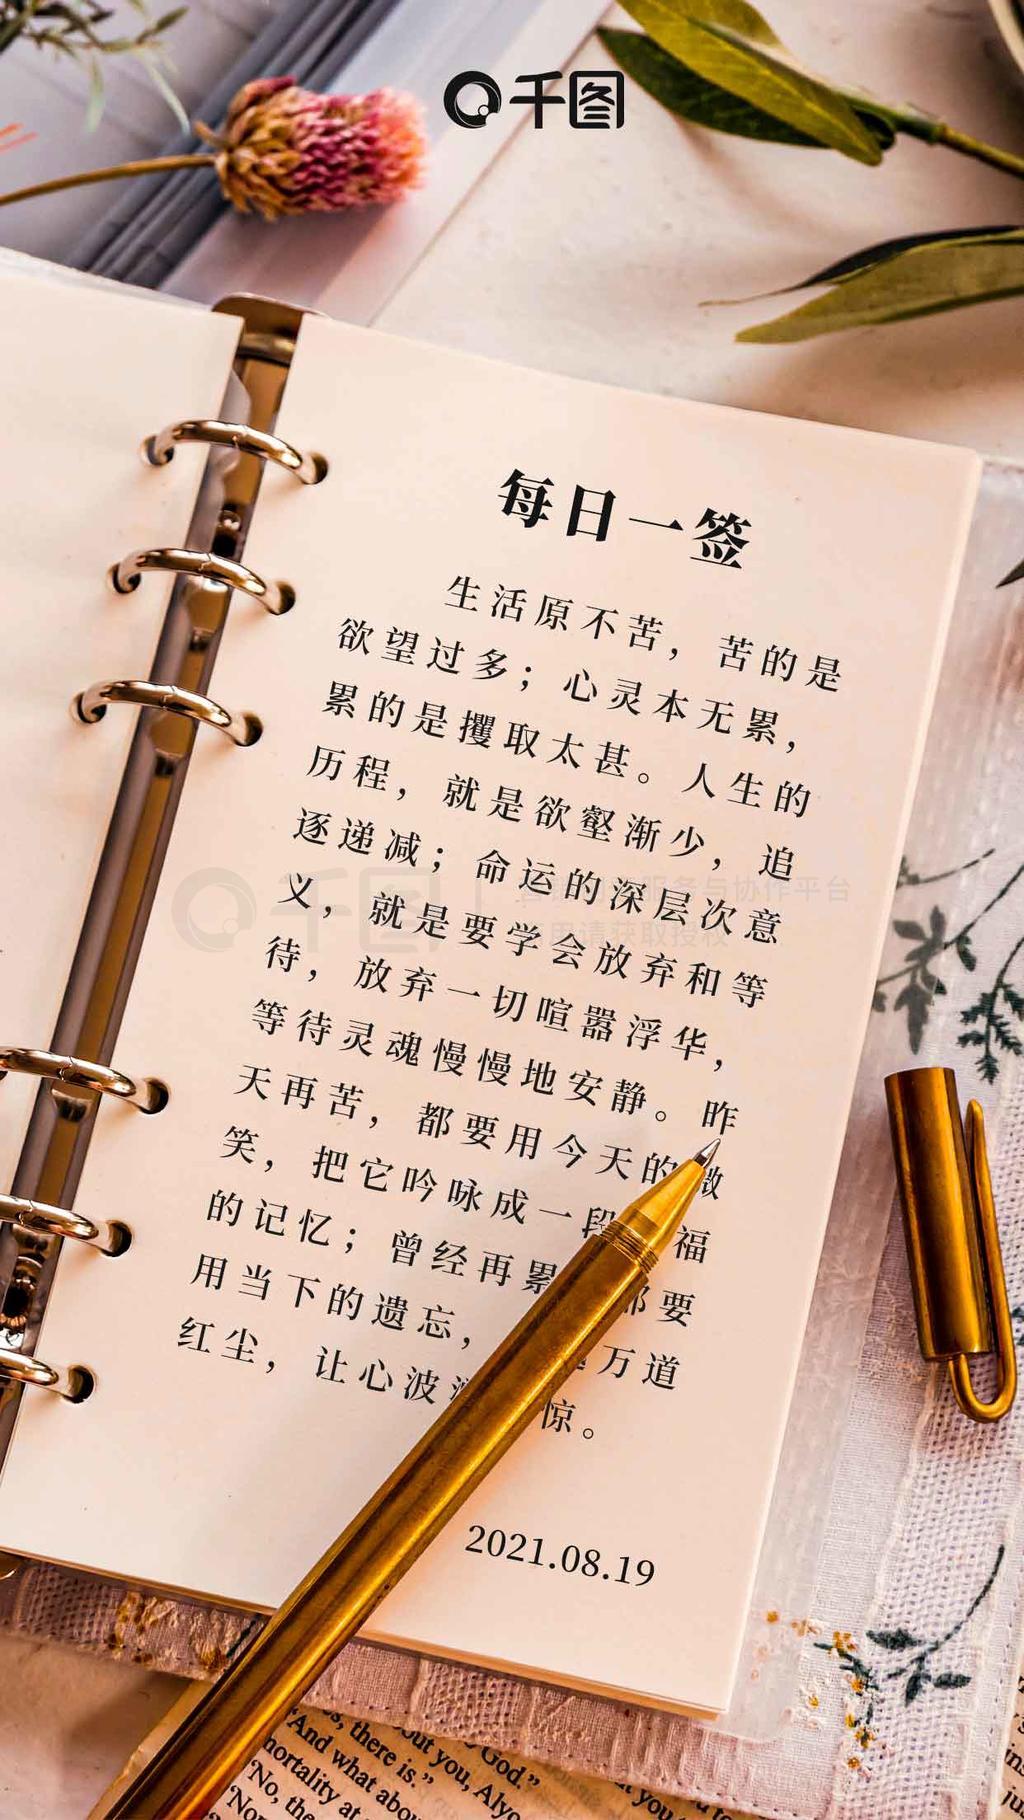 千图
每日一签
生活原不苦，苦的是
欲望过多；心灵本无累，
累的是攫取太甚。人生的
历程，就是欲壑渐少，追
逐递减；命运的深层次意
义，就是要学会放弃和等
待，放弃一切喧嚣浮华，
等待灵魂慢慢地安静。昨
天再苦，都要用今天的微
笑，把它吟咏成一段福
的记忆；曾经再累都要
用当下的遗忘，万道
红尘，让心波惊。
2021.08.19
千图
服务与协作平台
请获取授权
s, there is."
out you, Alyo
God."
"And what abou
mortality at
"No, the
"Nor